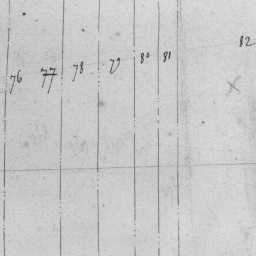 76 77 78 79 80 81 82